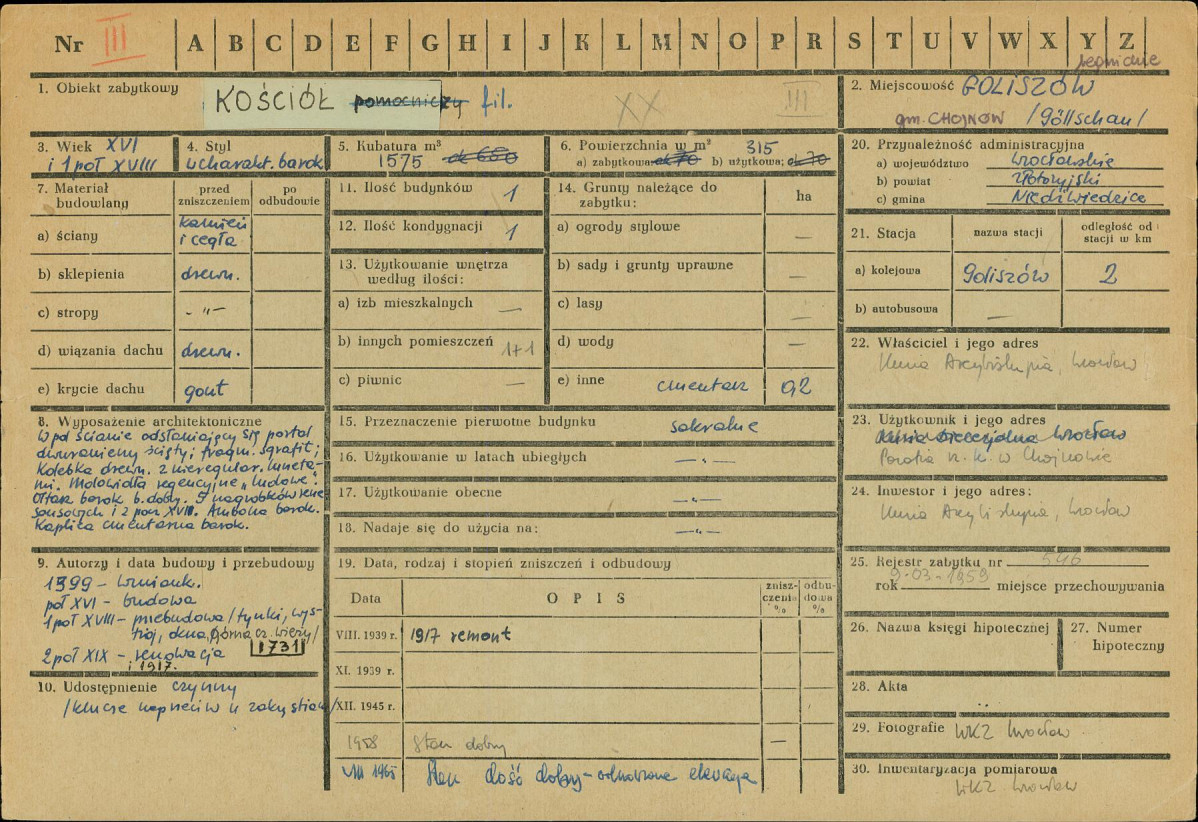 Nr III A B C D E F G H I J K L M N O P R S T U V W X Y Z
legnickie
1. Obiekt zabytkowy
KOŚCIÓŁ pomocniczy fil.
XX
III
2. Miejscowość GOLISZÓW
gm. CHOJNÓW /Göllschau/
3. Wiek XVI
i 1 poł XVIII
4. Styl
u charakt. barok
5. Kubatura m³
1575 ok 680
6. Powierzchnia w m² 315
a) zabytkowa: ok 70 b) użytkowa: ok 70
20. Przynależność administracyjna
a) województwo wrocławskie
b) powiat złotoryjski
c) gmina Niedźwiedzice
7. Materiał budowlany
przed zniszczeniem
po odbudowie
a) ściany kamień
i cegła
b) sklepienia drewn.
c) stropy - „ -
d) wiązania dachu drewn.
e) krycie dachu gont
11. Ilość budynków 1
12. Ilość kondygnacji 1
13. Użytkowanie wnętrza
według ilości:
a) izb mieszkalnych —
b) innych pomieszczeń 1+1
c) piwnic —
14. Grunty należące do
zabytku:
ha
a) ogrody stylowe —
b) sady i grunty uprawne —
c) lasy —
d) wody —
e) inne cmentarz 0,2
21. Stacja
nazwa stacji
odległość od
stacji w km
a) kolejowa Goliszów 2
b) autobusowa —
22. Właściciel i jego adres
Kuria Arcybiskupia, Wrocław
8. Wyposażenie architektoniczne
W pd ścianie odsłaniający się portal
dwuramienny ścięty; fragm. sgrafit;
Kolebka drewn. z nieregular. luneta-
mi. Malowidła regencyjne „ludowe".
Ołtarz barok b. dobry. 5 nagrobków rene
sansowych i 2 poł XVIII. Ambona barok.
Kaplica cmentarna barok.
15. Przeznaczenie pierwotne budynku sakralne
16. Użytkowanie w latach ubiegłych —„—
17. Użytkowanie obecne —„—
18. Nadaje się do użycia na: —„—
23. Użytkownik i jego adres
Kuria Diecezjalna Wrocław
Parafia rz. k. w Chojnowie
24. Inwestor i jego adres:
Kuria Arcybiskupia, Wrocław
9. Autorzy i data budowy i przebudowy
1399 - wzmiank.
poł XVI - budowa
1 poł XVIII - przebudowa /tynki, wys-
trój, okna, górna cz. wieży/
1731
2 poł XIX - renowacja
i 1917.
10. Udostępnienie czynny
/klucze naprzeciw u zakrystiana/
19. Data, rodzaj i stopień zniszczeń i odbudowy
Data
OPIS
znisz-
czenia
%
odbu-
dowa
%
VIII. 1939 r. 1917 remont
XI. 1939 r.
XII. 1945 r.
1958 Stan dobry —
VIII 1965 Stan dość dobry - odnowiona elewacja
25. Rejestr zabytku nr 546
rok 9-03-1959 miejsce przechowywania
26. Nazwa księgi hipotecznej
27. Numer
hipoteczny
28. Akta
29. Fotografie WKZ Wrocław
30. Inwentaryzacja pomiarowa
WKZ Wrocław